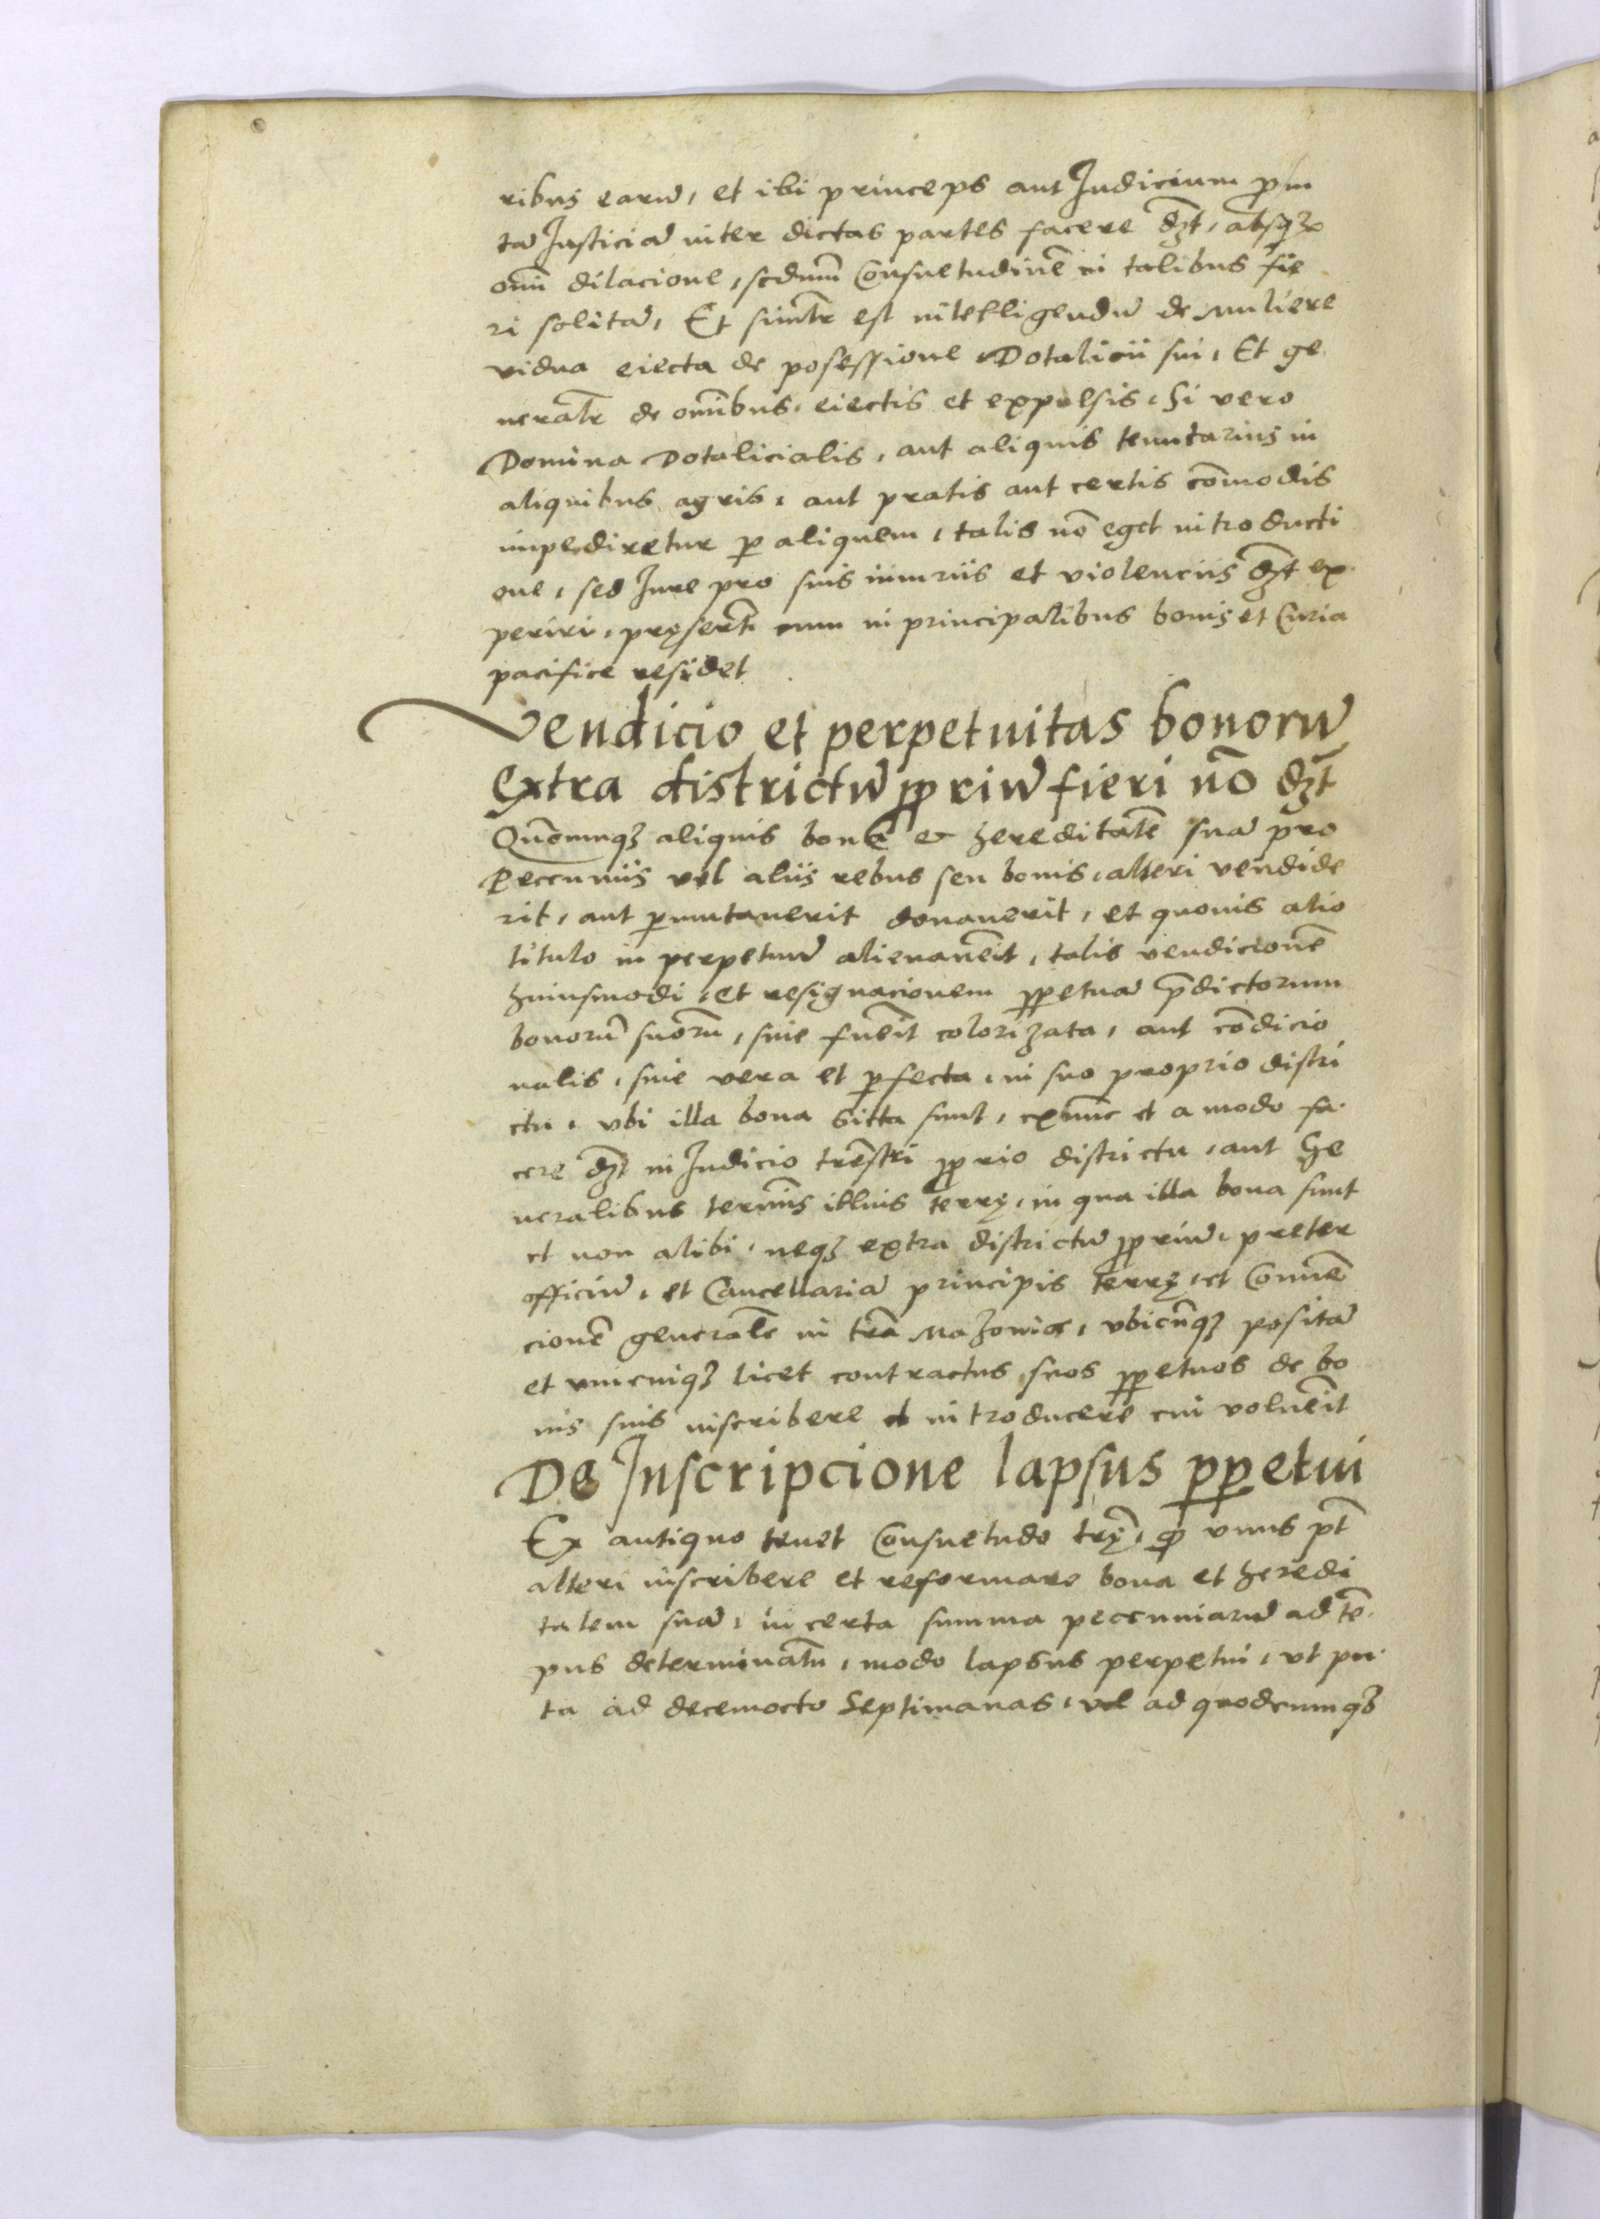 ribus earū, et ibi princeps aut Judicium prōm
tā Justiciā inter dictas partes facere dꝫt, absqꝫ
omī dilacione, scdum̄ Consuetudinē in talibus fie
ri solitā, Et simltr̄ est intelligendū de muliere
vidua eiecta de posessione Dotalicii sui, Et ge
neraltr̄ de om̄ibus, eiectis et expulsis, Si vero
Domina Dotalicialis, aut aliquis tenutarius in
aliquibus agris, aut pratis aut certis com̄odis
impediretur ꝑ aliquem, talis nō eget introducti
one, sed Jure pro suis iniuriis et violenciis dꝫt ex
periri, pręsertī cum in principalibus bonis et Curia
pacifice residet
Vendicio et perpetuitas bonorū
Extra districtū ꝓpriū fieri nō dꝫt
Quōcunqꝫ aliquis bona et hereditatē suā pro
Peccuniis vel aliis rebus seu bonis, alteri vendide
rit, aut ꝑmutauerit donauerit, et quouis alio
titulo in perpetuū alienauēit, talis vendicionē
huiusmodi, et resignacionem ꝑpetuā p̄dictorum
bonorū suorū, siue fuēit colorizata, aut cōdicio
nalis, siue vera et ꝑfecta, in suo proprio distri
ctu, vbi illa bona sitta sunt, exnunc et a modo fa
cere dꝫt in Judicio trēstri ꝓprio districtu, aut Ge
neralibus termīs illius terrę, in qua illa bona sunt
et non alibi, neqꝫ extra districtū ꝓpriū, preter
officiū, et Cancellariā principis terrę, et Conuē
cionē generalē in trā Mazouię, vbicūqꝫ positā
et vnicuiqꝫ licet contractus suos ꝑpetuos de bo
nis suis inscribere et introducere cui voluēit
De Inscripcione lapsus ꝑpetui
Ex antiquo tenet Consuetudo trę, qđ vnus pt̄
alteri inscribere et reformare bona et heredi
tatem suā, in certa summa peccuniarū ad tē
pus determinatū, modo lapsus perpetui, vt pu
ta ad decemocto Septimanas, vel ad quodcunqꝫ